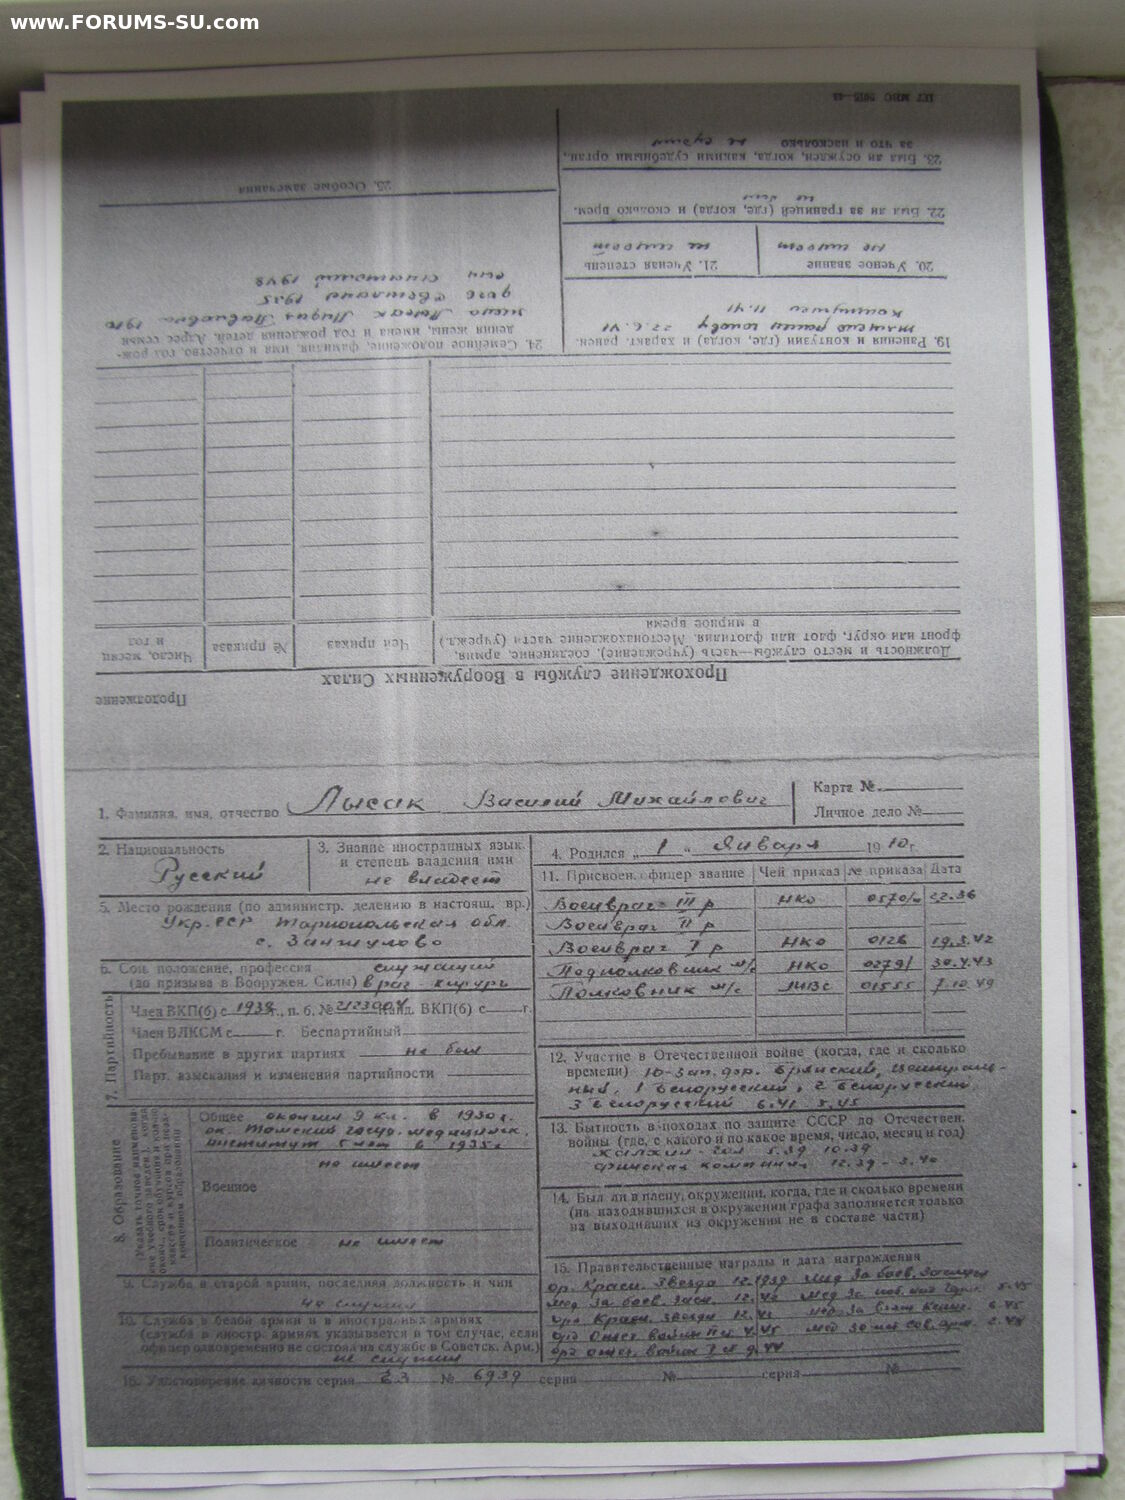 www.FORUMS-SU.com
1. Фамилия, имя, отчество Лысак Василий Михайлович
Карта №
Личное дело №
2. Национальность
Русский
3. Знание иностранных язык.
и степень владения ими
не владеет
4. Родился „1“ Января 1910 г.
5. Место рождения (по администр. делению в настоящ. вр.)
Укр. ССР Тарнопольская обл.
с.
6. Соц. положение, профессия служащий
(до призыва в Вооружен. Силы) врач-хирург
7. Партийность
Член ВКП(б) с 1939 г., п. б. № Канд. ВКП(б) с г.
Член ВЛКСМ с г. Беспартийный
Пребывание в других партиях не был
Парт. взыскания и изменения партийности
8. Образование
Общее окончил 9 кл. в 1930 г.
ок. Томский госуд. медицинск.
институт 5 лет в 1935 г.
не имеет
Военное
Политическое не имеет
9. Служба в старой армии, последняя должность и чин
не служил
10. Служба в белой армии и в иностранных армиях
(служба в иностр. армиях указывается в том случае, если
офицер одновременно не состоял на службе в Советск. Арм.)
не служил
11. Присвоен. офицер звание Чей приказ № приказа Дата
Военврач III р НКО
Военврач II р
Военврач I р НКО 0126 19.3.42
Подполковник м/с НКО 02791 30.4.43
Полковник м/с 01555 7.10.49
12. Участие в Отечественной войне (когда, где и сколько
времени)
1 Белорусский, 2 Белорусский,
3 Белорусский 6.41 5.45
13. Бытность в походах по защите СССР до Отечествен.
войны (где, с какого и по какое время, число, месяц и год)
Халхин-Гол 5.39 10.39
Финская компания 12.39 - 3.40
14. Был ли в плену, окружении, когда, где и сколько времени
(на находившихся в окружении графа заполняется только
на выходивших из окружения не в составе части)
15. Правительственные награды и дата награждения
ор. Красн. Звезда 12.1939 Мед За боев. Заслуги
мед За боев. Засл. 12.42 5.45
орд Красн. Звезды 12.42 6.45
орд Отеч. войны II ст 4.45 2.48
орд отеч. войны I ст 9.44
16. Удостоверение личности серия № 6939 серия № серия №
Продолжение
Прохождение службы в Вооруженных Силах
Должность и место службы—часть (учреждение), соединение, армия,
фронт или округ, флот или флотилия. Местонахождение части (учрежд.)
в мирное время
Чей приказ
№ приказа
Число, месяц
и год
19. Ранения и контузии (где, когда) и характ. ранен.
тяжело ранен 22.6.41
11.41
20. Ученое звание
не имеет
21. Ученая степень
не имеет
22. Был ли за границей (где, когда) и сколько врем.
не был
23. Был ли осужден, когда, какими судебными орган.,
за что и насколько не судим
24. Семейное положение, фамилия, имя и отчество, год рож-
дения жены, имена и год рождения детей. Адрес семьи
жена Лысак Лидия Павловна 1910
дочь Светлана 1935
сын 1948
25. Особые замечания